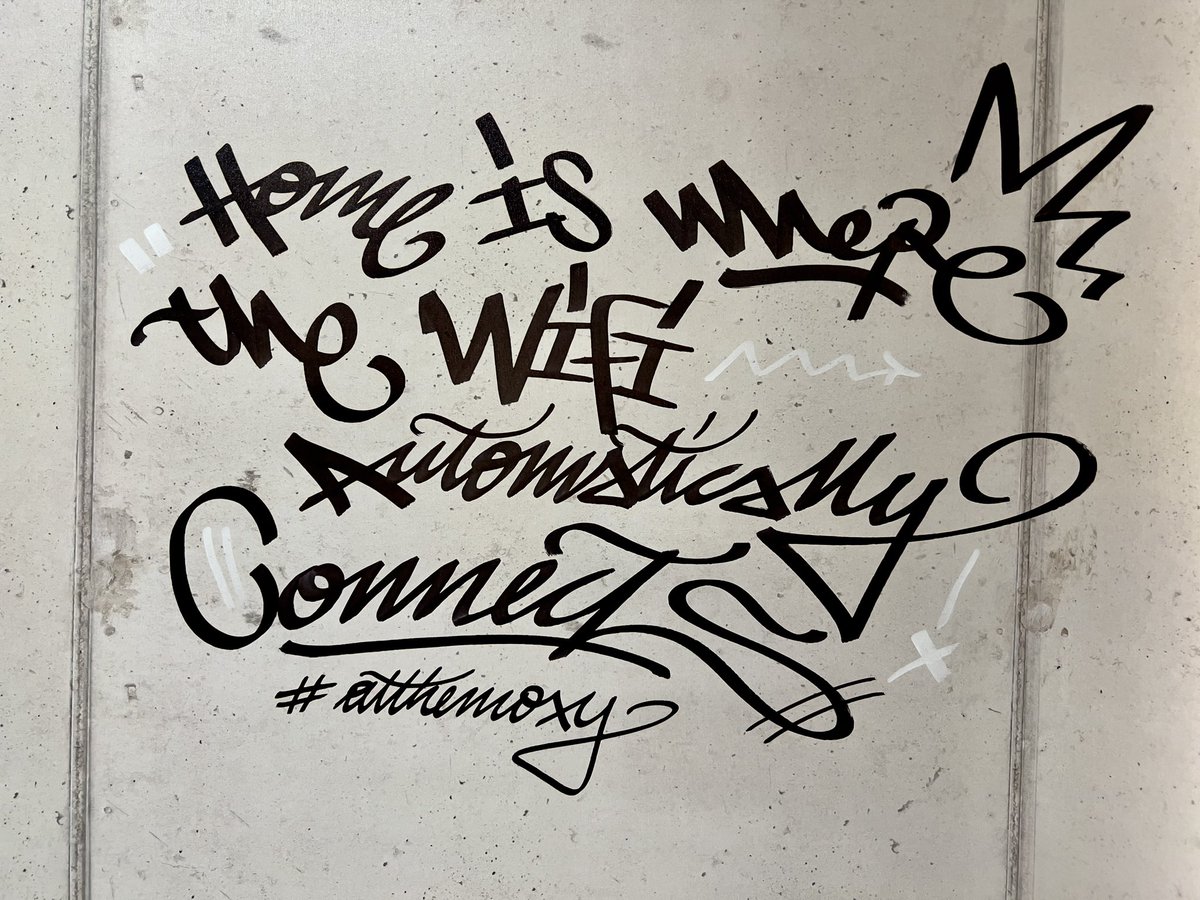 "Home is where
the WiFi
Automatically
Connects
#atthemoxy